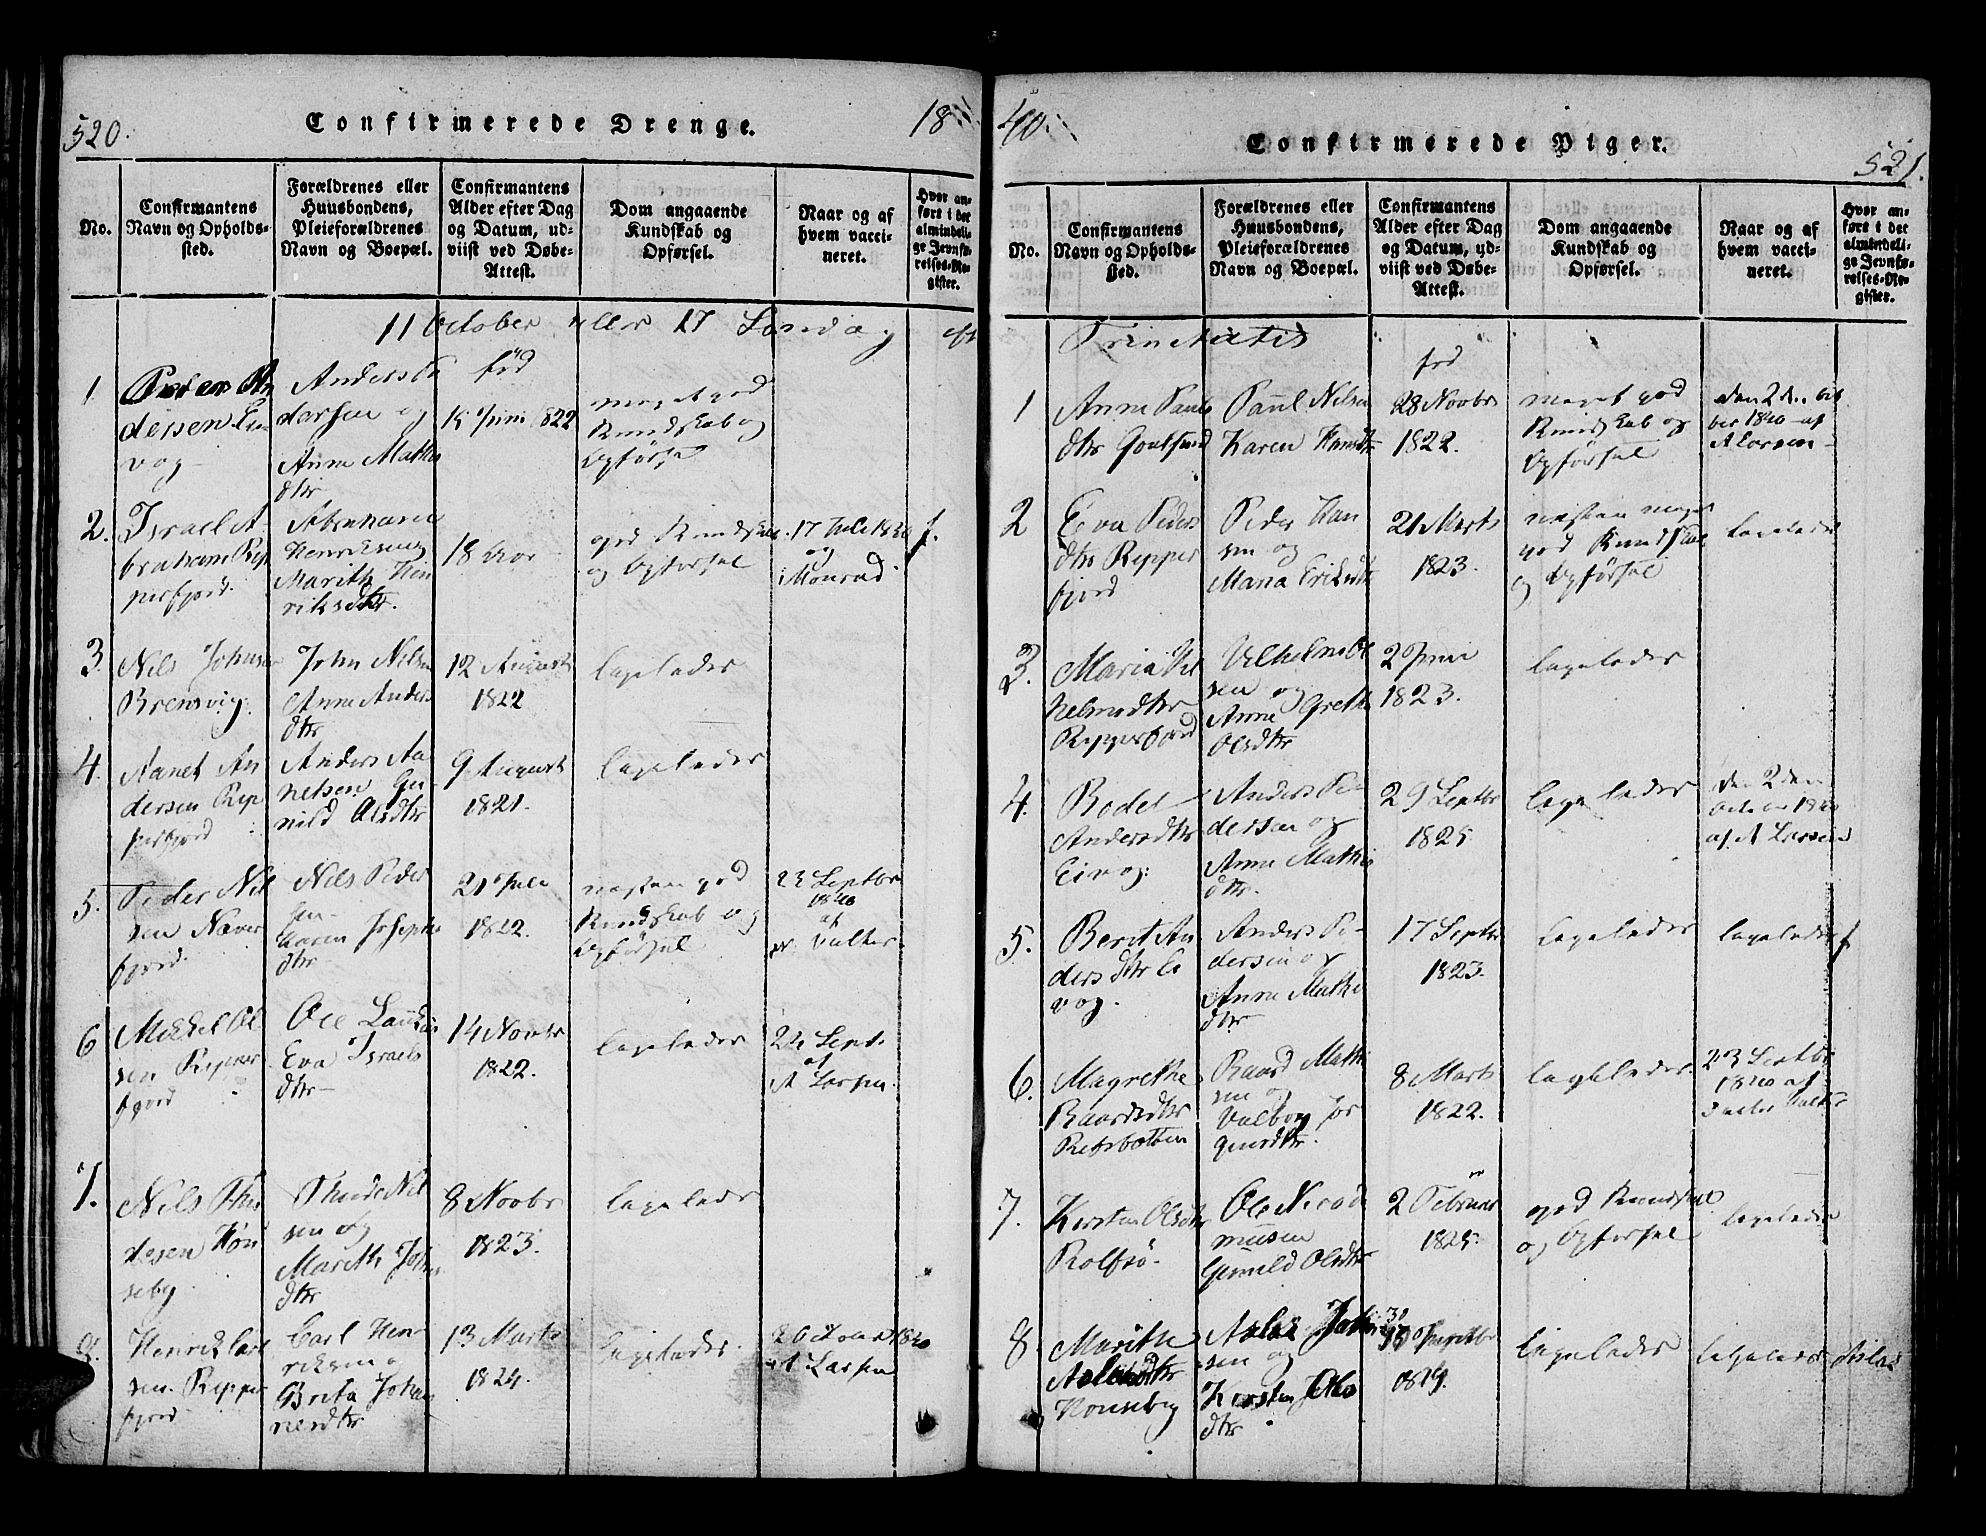 520.
Confirmerede Drenge.
18
No.
Confirmantens
Navn og Opholds-
sted.
Forældrenes eller
Huusbondens,
Pleieforældrenes
Navn og Boepæl.
Confirmantens
Alder efter Dag
og Datum, ud-
viist ved Døbe-
Attest.
Dom angaaende
Kundskab og
Opførsel.
Naar og af
hvem vacci-
neret.
Hvor an-
ført i det
almindeli-
ge Jevnfø-
relses-Re-
gister.
11 October eller 17 Søndag
1
Peder An
dersen Ei
vog
Anders Pe
dersen og
Anne Mathis
dtr
fød
15 Juni 1822
meget god
Kundskab og
Opførsel
2.
Israel A-
braham Rep
perfjord.
Abraham
Henriksen og
Marith Hen
riksdtr.
18 Aar
god Kundskab
og Opførsel
17 Juli 1830
Monrad
f.
3.
Nils Johnsen
Brensvig.
John Nilsen
Anne Anders
dtr
12 August
1822
lageledes
4.
Aanet An
dersen Rep
perfjord
Anders Aa
netsen Gu-
nild Olsdtr
9 August
1821.
lageledes
5.
Peder Nil
sen Næver
fjord.
Nils Peder
sen
Karen Josephs
dtr
21 Juli
1822.
næsten god
Kundskab og
Opførsel
23 Septbr
1840
af
Valker
6
Mikkel Ol
sen Repper
fjord
Ole
Eva Israels
dtr
14 Novbr
1822.
lageledes
Sept.
af
A Larsen.
7.
Nils Thu
desen Høn
seby
Thude Nil
sen og
Marith John
dtr
8 Novbr
1823.
lageledes
8.
Henrik Carl
sen Repper
fjord
Carl Hen-
riksen og
Brita Johan
nesdtr
13 Marts
1824.
lageledes.
1840
A Larsen
40.
Confirmerede Piger.
521.
No.
Confirmantens
Navn og Opholds-
sted.
Forældrenes eller
Huusbondens,
Pleieforældrenes
Navn og Boepæl.
Confirmantens
Alder efter Dag
og Datum, ud-
viist ved Døbe-
Attest.
Dom angaaende
Kundskab og
Opførsel.
Naar og af
hvem vacci-
neret.
Hvor an-
ført i det
almindeli-
ge Jevnfø-
relses-Re-
gister.
Trinitatis
1
Anne Pauls
dtr
Paul Nilsen
Karen Hansdtr
fød
28 Novbr
1822.
meget god
Kundskab og
Opførsel
den 2den Octo
ber 1840 af
A Larsen
2
Eva Peders
dtr Repper
fjord
Peder Han
sen og
Maria Eriksdtr
21 Marts
1823.
næsten meget
god Kundskab
og Opførsel
lageledes
3.
Maria Vil
helmsdtr
Repperfjord
Vilhelm Ol
sen og
Anne Grethe
Olsdtr
2 Juni
1823.
lageledes
4.
Bodel
Andersdtr
Eivog.
Anders Pe-
dersen og
Anne Mathis
dtr.
29 Septbr
1825
lageledes
den 2den
October 1840
af A Larsen
5.
Berit An
dersdtr Ei
vog.
Anders Pe-
dersen og
Anne Mathis
dtr
17 Septbr
1823.
lageledes
lageledes
f
6.
Magrethe
Baardsdtr
Repsbotten
Baard Mathi
sen og
Valbor Jør
gensdtr.
8 Marts
1822.
lageledes
23 Septbr
1840 af
7.
Kirsten Olsdtr
Rolfsø.
Ole Nicode
musen
Gunild Olsdtr
2 Februar
1825.
god Kundskab
og Opførsel
lageledes
8
Marithe
Aslaksdtr
Hønseby
Aslak
sen og
Kirsten
dtr
1819.
lageledes
lageledes
Aslak